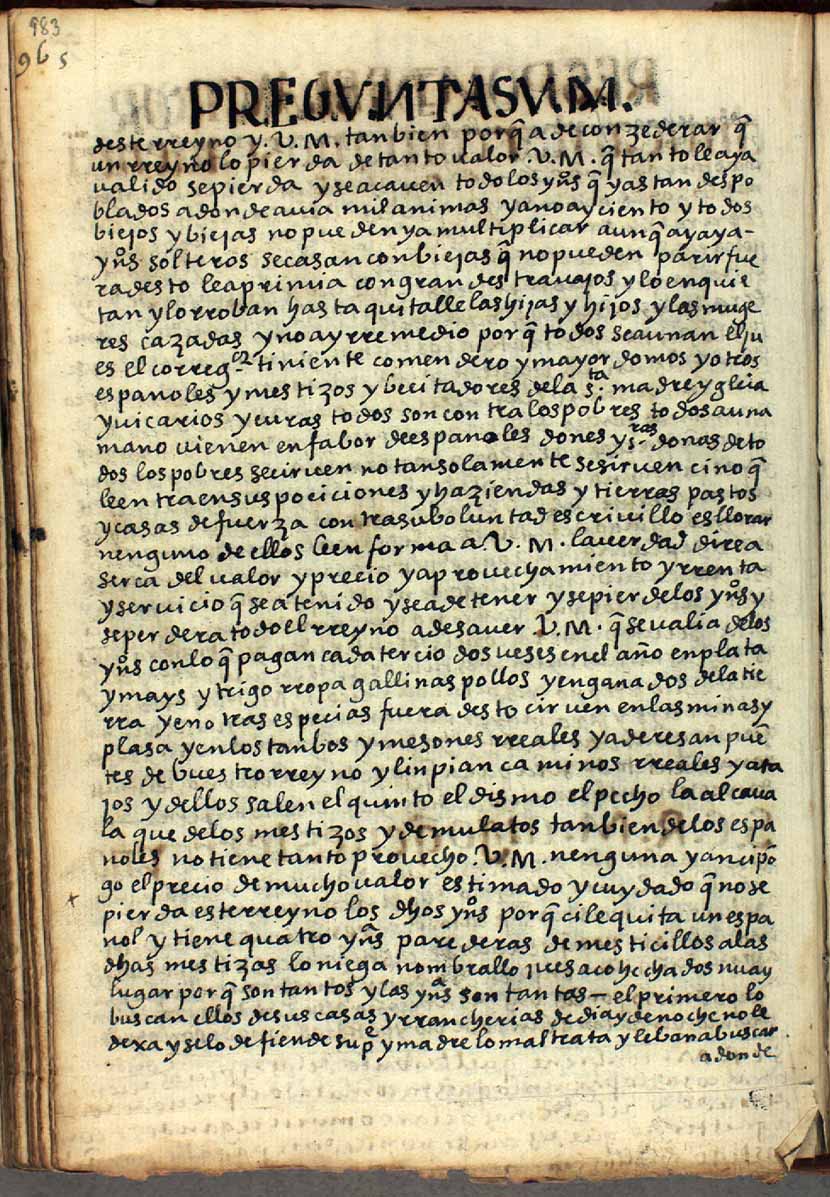 983
965
PREGVNTA SV M.
deste rreyno y. V. M. tanbien porq̃ a de conzederar q̃
un rreyno lo pierda de tanto valor. V. M. q̃ tanto le aya
valido se pierda y se acaven todo los yn̊s q̃ yastan despo
blados adonde avia mil animas ya no ay ciento y todos
biejos y biejas no pueden ya multiplicar aunq̃ ay aya-
yn̊s solteros se casan con biejas q̃ no pueden parir fue
ra desto le aprimia con grandes travajos y lo enquie
tan y lo rroban hasta quitalle las hijas y hijos y las muge
res cazadas y no ay rremedio porq̃ todos se aunan el ju
es el correg.or tiniente comendero y mayordomos y otros
espanoles y mestizos y becitadores de la s.ta madre yglecia
y vicarios y curas todos son contra los pobres todos a una
mano vienen en fabor de espanoles dones y s.ras donas de to
dos los pobres se cirven no tan solamente se sirven cino q̃
le entra en sus pociciones y haziendas y tierras pastos
y casas de fuerza contra su boluntad escrivillo es llorar
nenguno de ellos le enforma a. V. M. la verdad dirẽ a
serca del valor y precio y aprovechamiento y rrenta
y servicio q̃ se a tenido y se a de tener y se pierde los yn̊s y
se perdera todo el rreyno a de saver. V. M. q̃ se valia de los
yn̊s con lo q̃ pagan cada tercio dos veses en el año en plata
y mays y trigo rropa gallinas pollos y en ganados de la tie
rra y en otras especias fuera desto cirven en las minas y
plasa y en los tanbos y mesones rreales y aderesan puẽ
tes de buestro rreyno y linpian caminos rreales y ata
jos y dellos salen el quinto el dismo el pecho la alcava
la que de los mestizos y de mulatos tanbien de los espa
noles no tiene tanto provecho. V. M. nenguna y anci põ
go el precio de mucho valor estimado y cuydado q̃ no se
pierda este rreyno los dhos yn̊s porq̃ ci le quita un espa
nol y tiene quatro ynªs parederas de mesticillos a las
dhas mestizas lo niega nombrallo jues acohechados nu ay
lugar porq̃ son tantos y las ynªs son tantas - el primero lo
buscan ellos de sus casas y rrancherias de dia y de noche no le
dexa y se lo defiende su pe y madre lo maltrata y leban a buscar
adonde